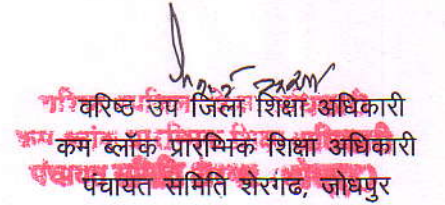 वरिष्ठ उप जिला शिक्षा अधिकारी
कम ब्लॉक प्रारम्भिक शिक्षा अधिकारी
पंचायत समिति शेरगढ, जोधपुर